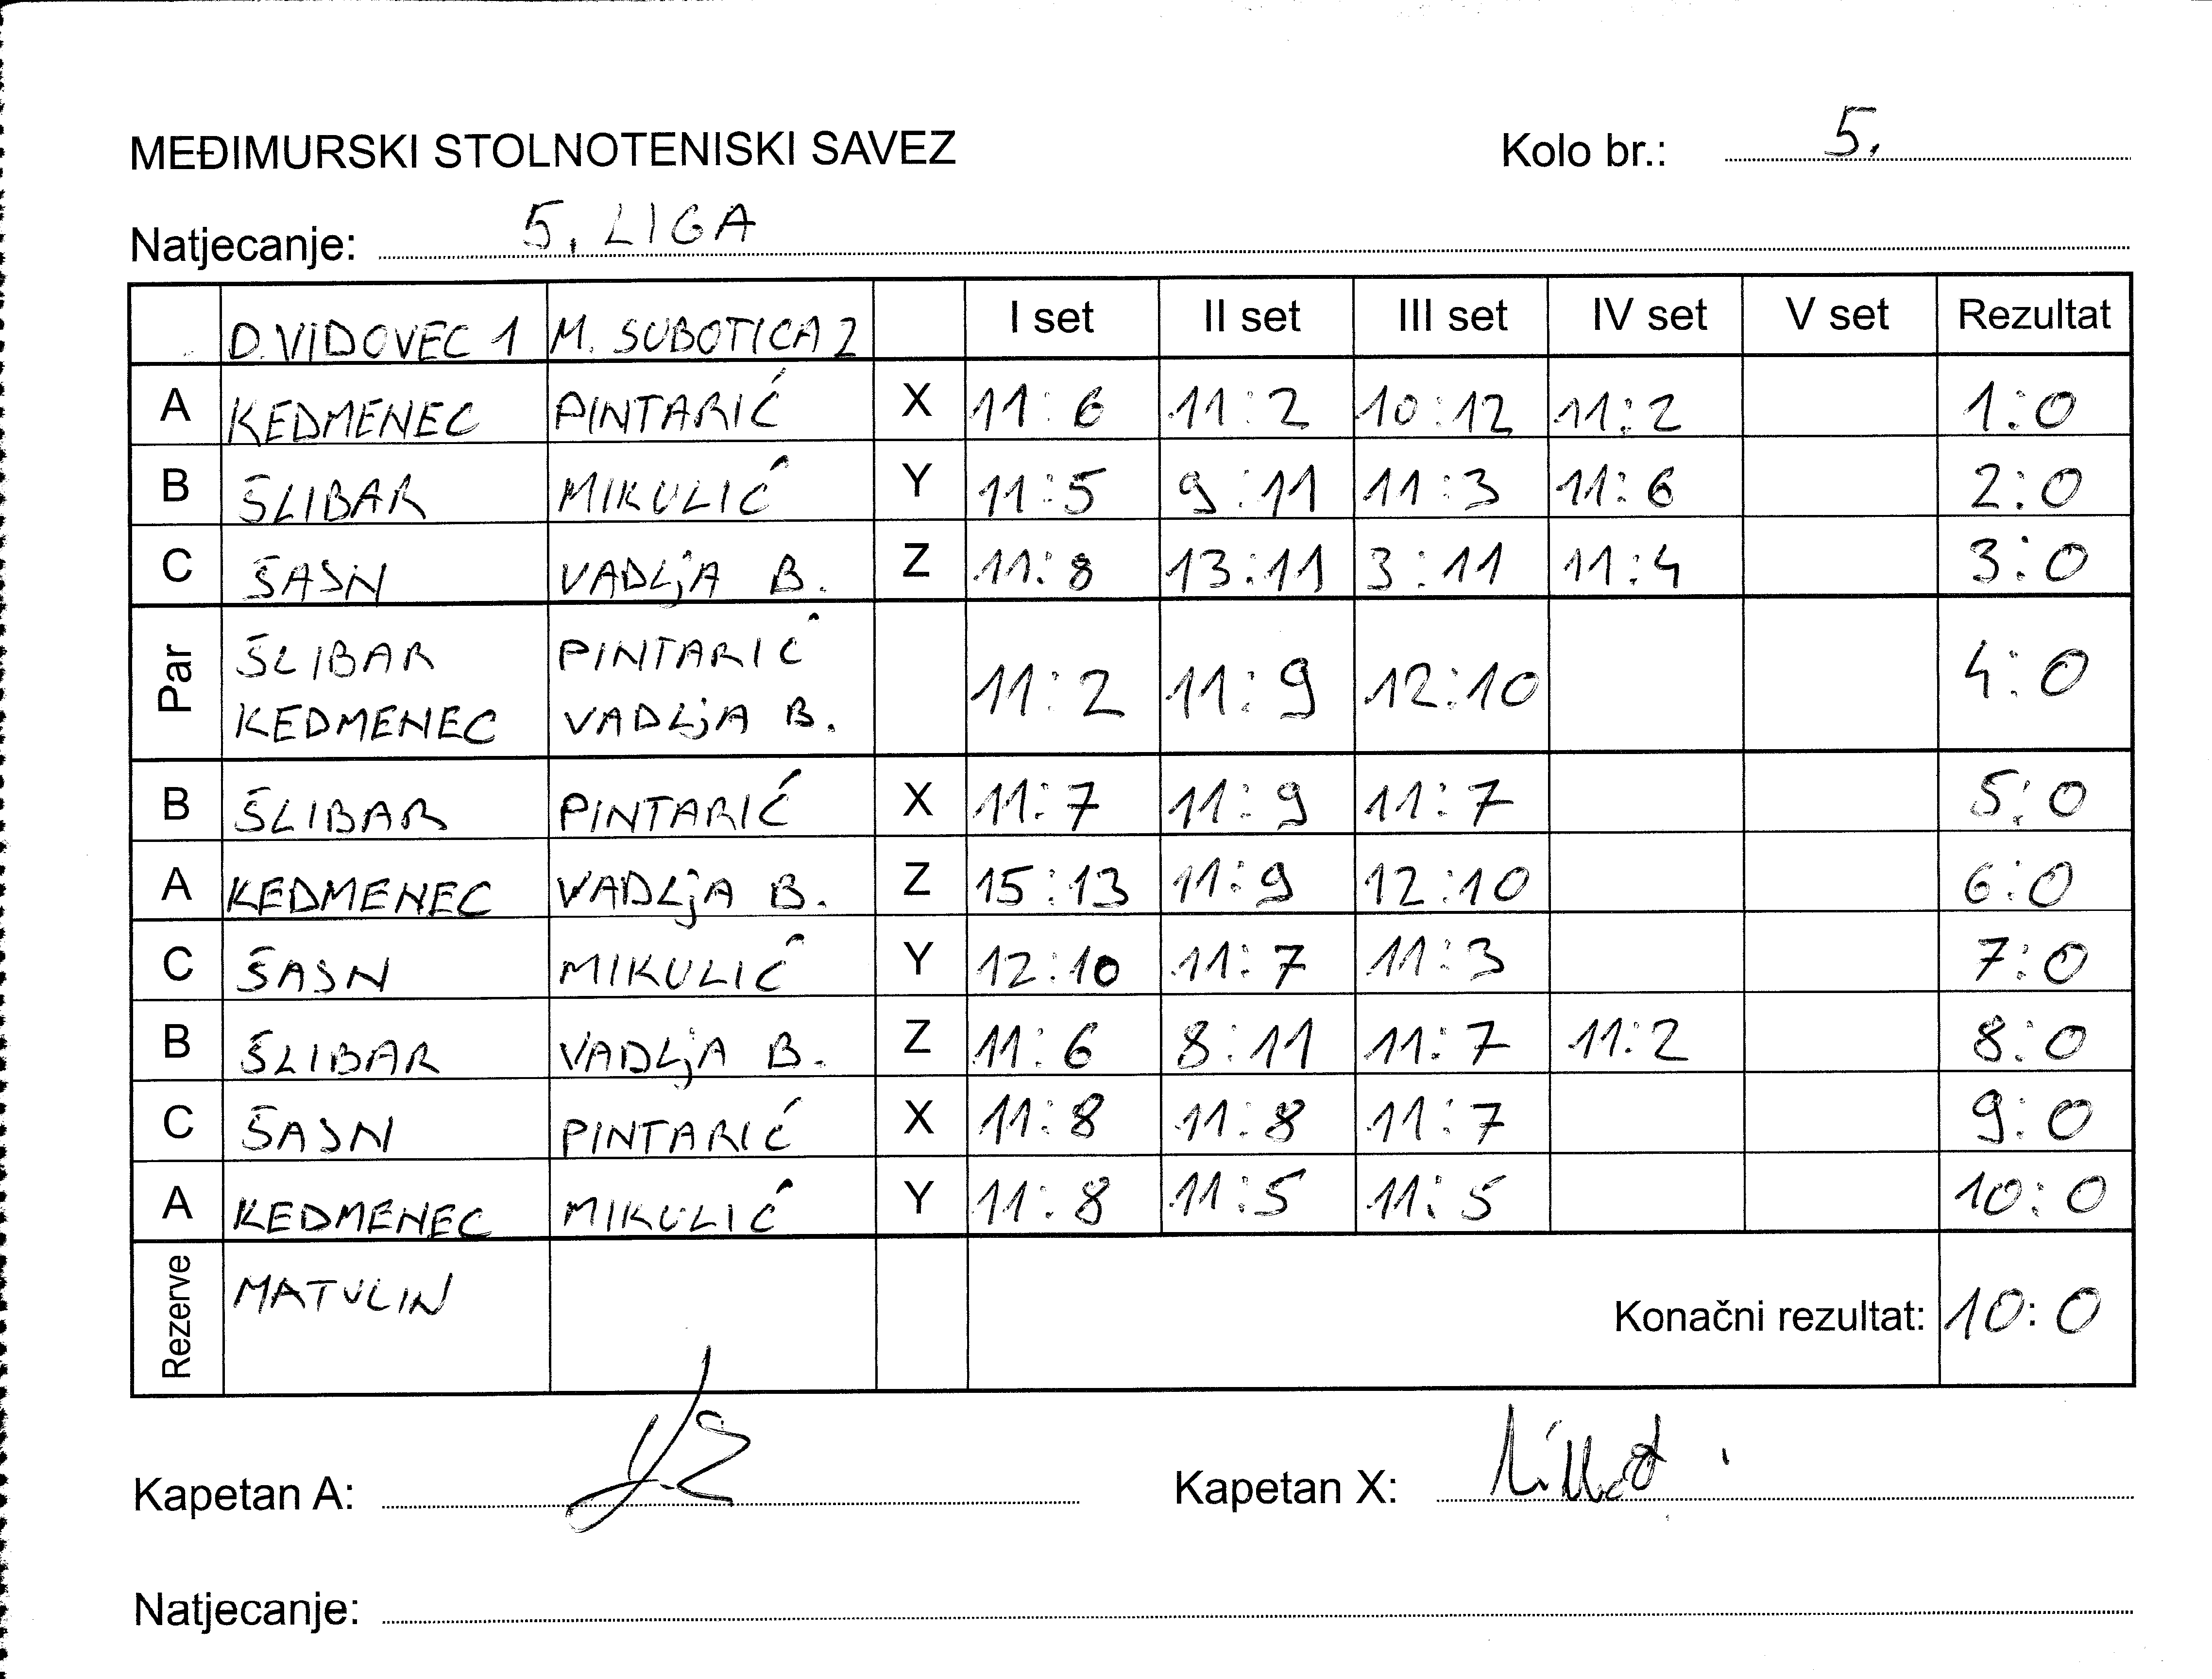 MEĐIMURSKI STOLNOTENISKI SAVEZ Kolo br.: 5.
Natjecanje: 5. LIGA
D. VIDOVEC 1 M. SUBOTICA 2 I set II set III set IV set V set Rezultat
A KEDMENEC PINTARIĆ X 11:6 11:2 10:12 11:2 1:0
B ŠLIBAR MIKULIĆ Y 11:5 9:11 11:3 11:6 2:0
C ŠASN VADLjA B. Z 11:8 13:11 3:11 11:4 3:0
Par ŠLIBAR PINTARIĆ 11:2 11:9 12:10 4:0
KEDMENEC VADLjA B.
B ŠLIBAR PINTARIĆ X 11:7 11:9 11:7 5:0
A KEDMENEC VADLjA B. Z 15:13 11:9 12:10 6:0
C ŠASN MIKULIĆ Y 12:10 11:7 11:3 7:0
B ŠLIBAR VADLjA B. Z 11:6 8:11 11:7 11:2 8:0
C ŠASN PINTARIĆ X 11:8 11:8 11:7 9:0
A KEDMENEC MIKULIĆ Y 11:8 11:5 11:5 10:0
Rezerve MATULIN Konačni rezultat: 10:0
Kapetan A: Kapetan X:
Natjecanje: